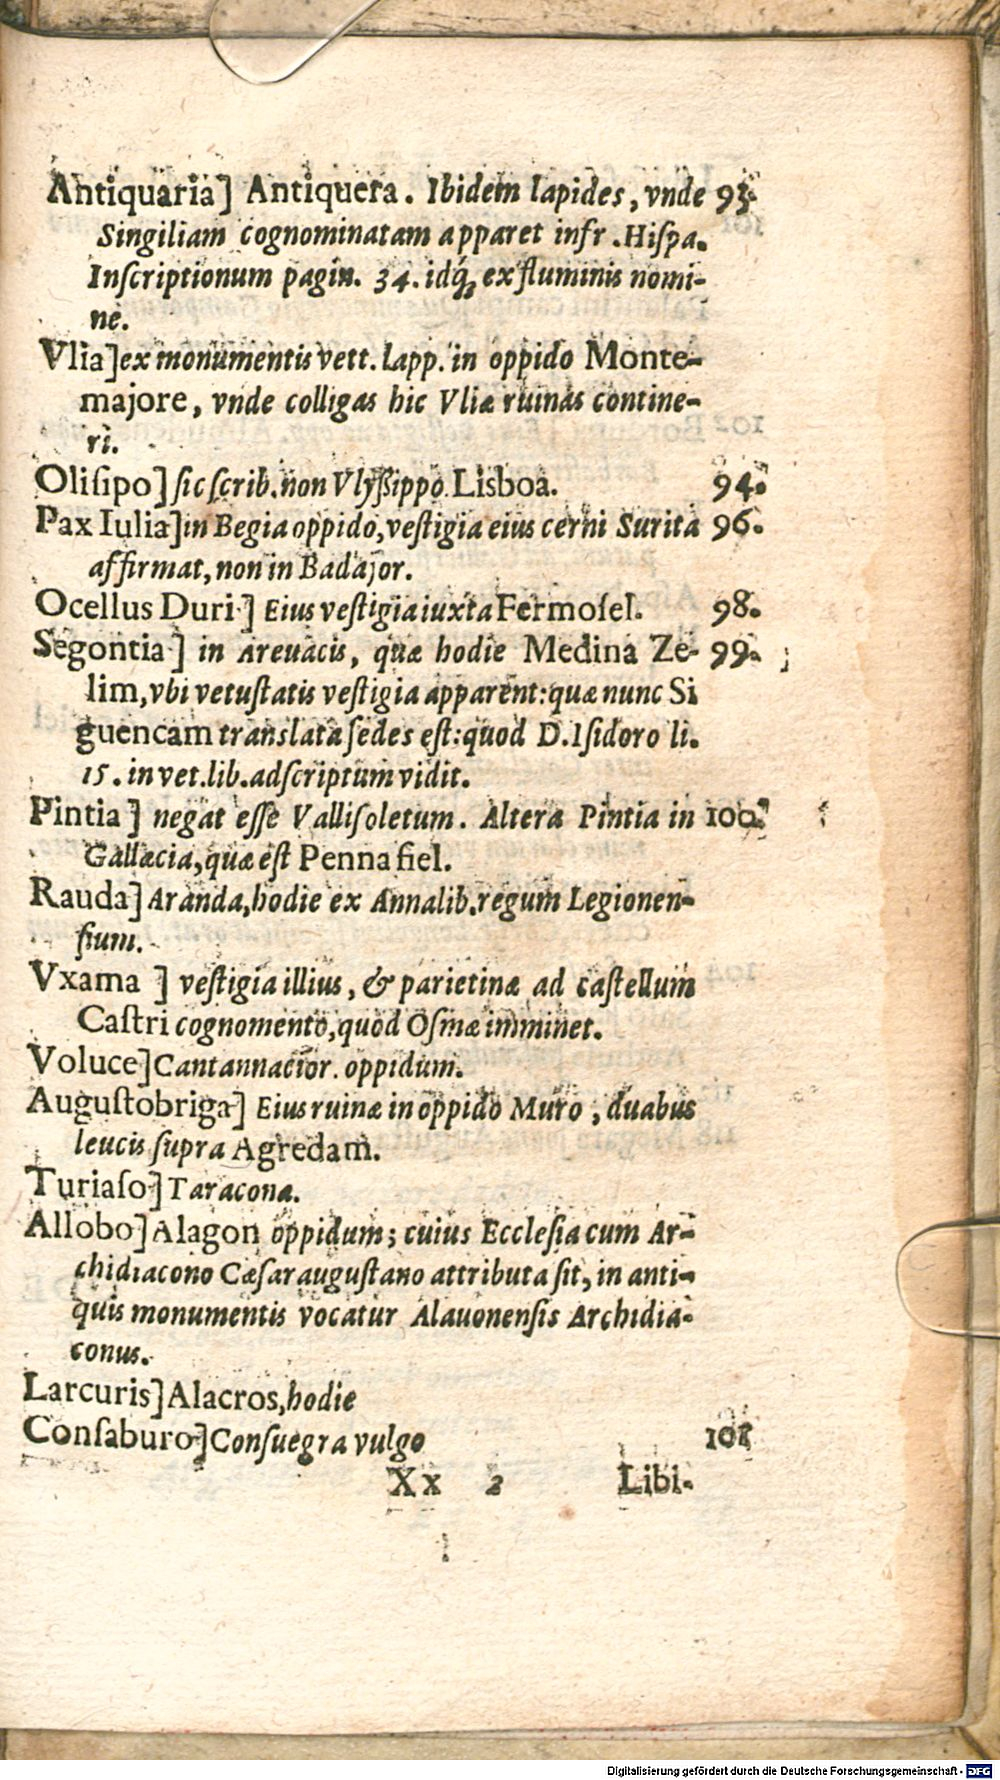 Antiquaria] Antiquera. Ibidem lapides, vnde 93.
Singiliam cognominatam apparet infr. Hiſpa.
Inſcriptionum pagin. 34. idq́; ex fluminis nomi-
ne.
Vlia] ex monumentis vett. lapp. in oppido Monte-
majore, vnde colligas hic Vliæ ruinas contine-
ri.
Oliſipo] ſic ſcrib. non Vlyßippo Lisboa. 94.
Pax Iulia] in Begia oppido, veſtigia eius cerni Surita 96.
affirmat, non in Badajor.
Ocellus Duri] Eius veſtigia iuxta Fermoſel. 98.
Segontia] in Areuacis, quæ hodie Medina Ze- 99.
lim, vbi vetuſtatis veſtigia apparent: quæ nunc Si
guencam translata ſedes eſt: quod D. Iſidoro li.
15. in vet. lib. adſcriptum vidit.
Pintia] negat eſſe Valliſoletum. Altera Pintia in 100.
Gallæcia, quæ eſt Penna fiel.
Rauda] Aranda, hodie ex Annalib. regum Legionen-
ſium.
Vxama] veſtigia illius, & parietinæ ad caſtellum
Caſtri cognomento, quod Oſmæ imminet.
Voluce] Cantannacior. oppidum.
Auguſtobriga] Eius ruinæ in oppido Muro, duabus
leucis ſupra Agredam.
Turiaſo] Taracona.
Allobo] Alagon oppidum; cuius Eccleſia cum Ar-
chidiacono Cæſaraugustano attributa ſit, in anti-
quis monumentis vocatur Alauonenſis Archidia-
conus.
Larcuris] Alacros, hodie
Conſaburo] Conſuegra vulgo 101
Xx 2 Libi-
Digitalisierung gefördert durch die Deutsche Forschungsgemeinschaft - DFG